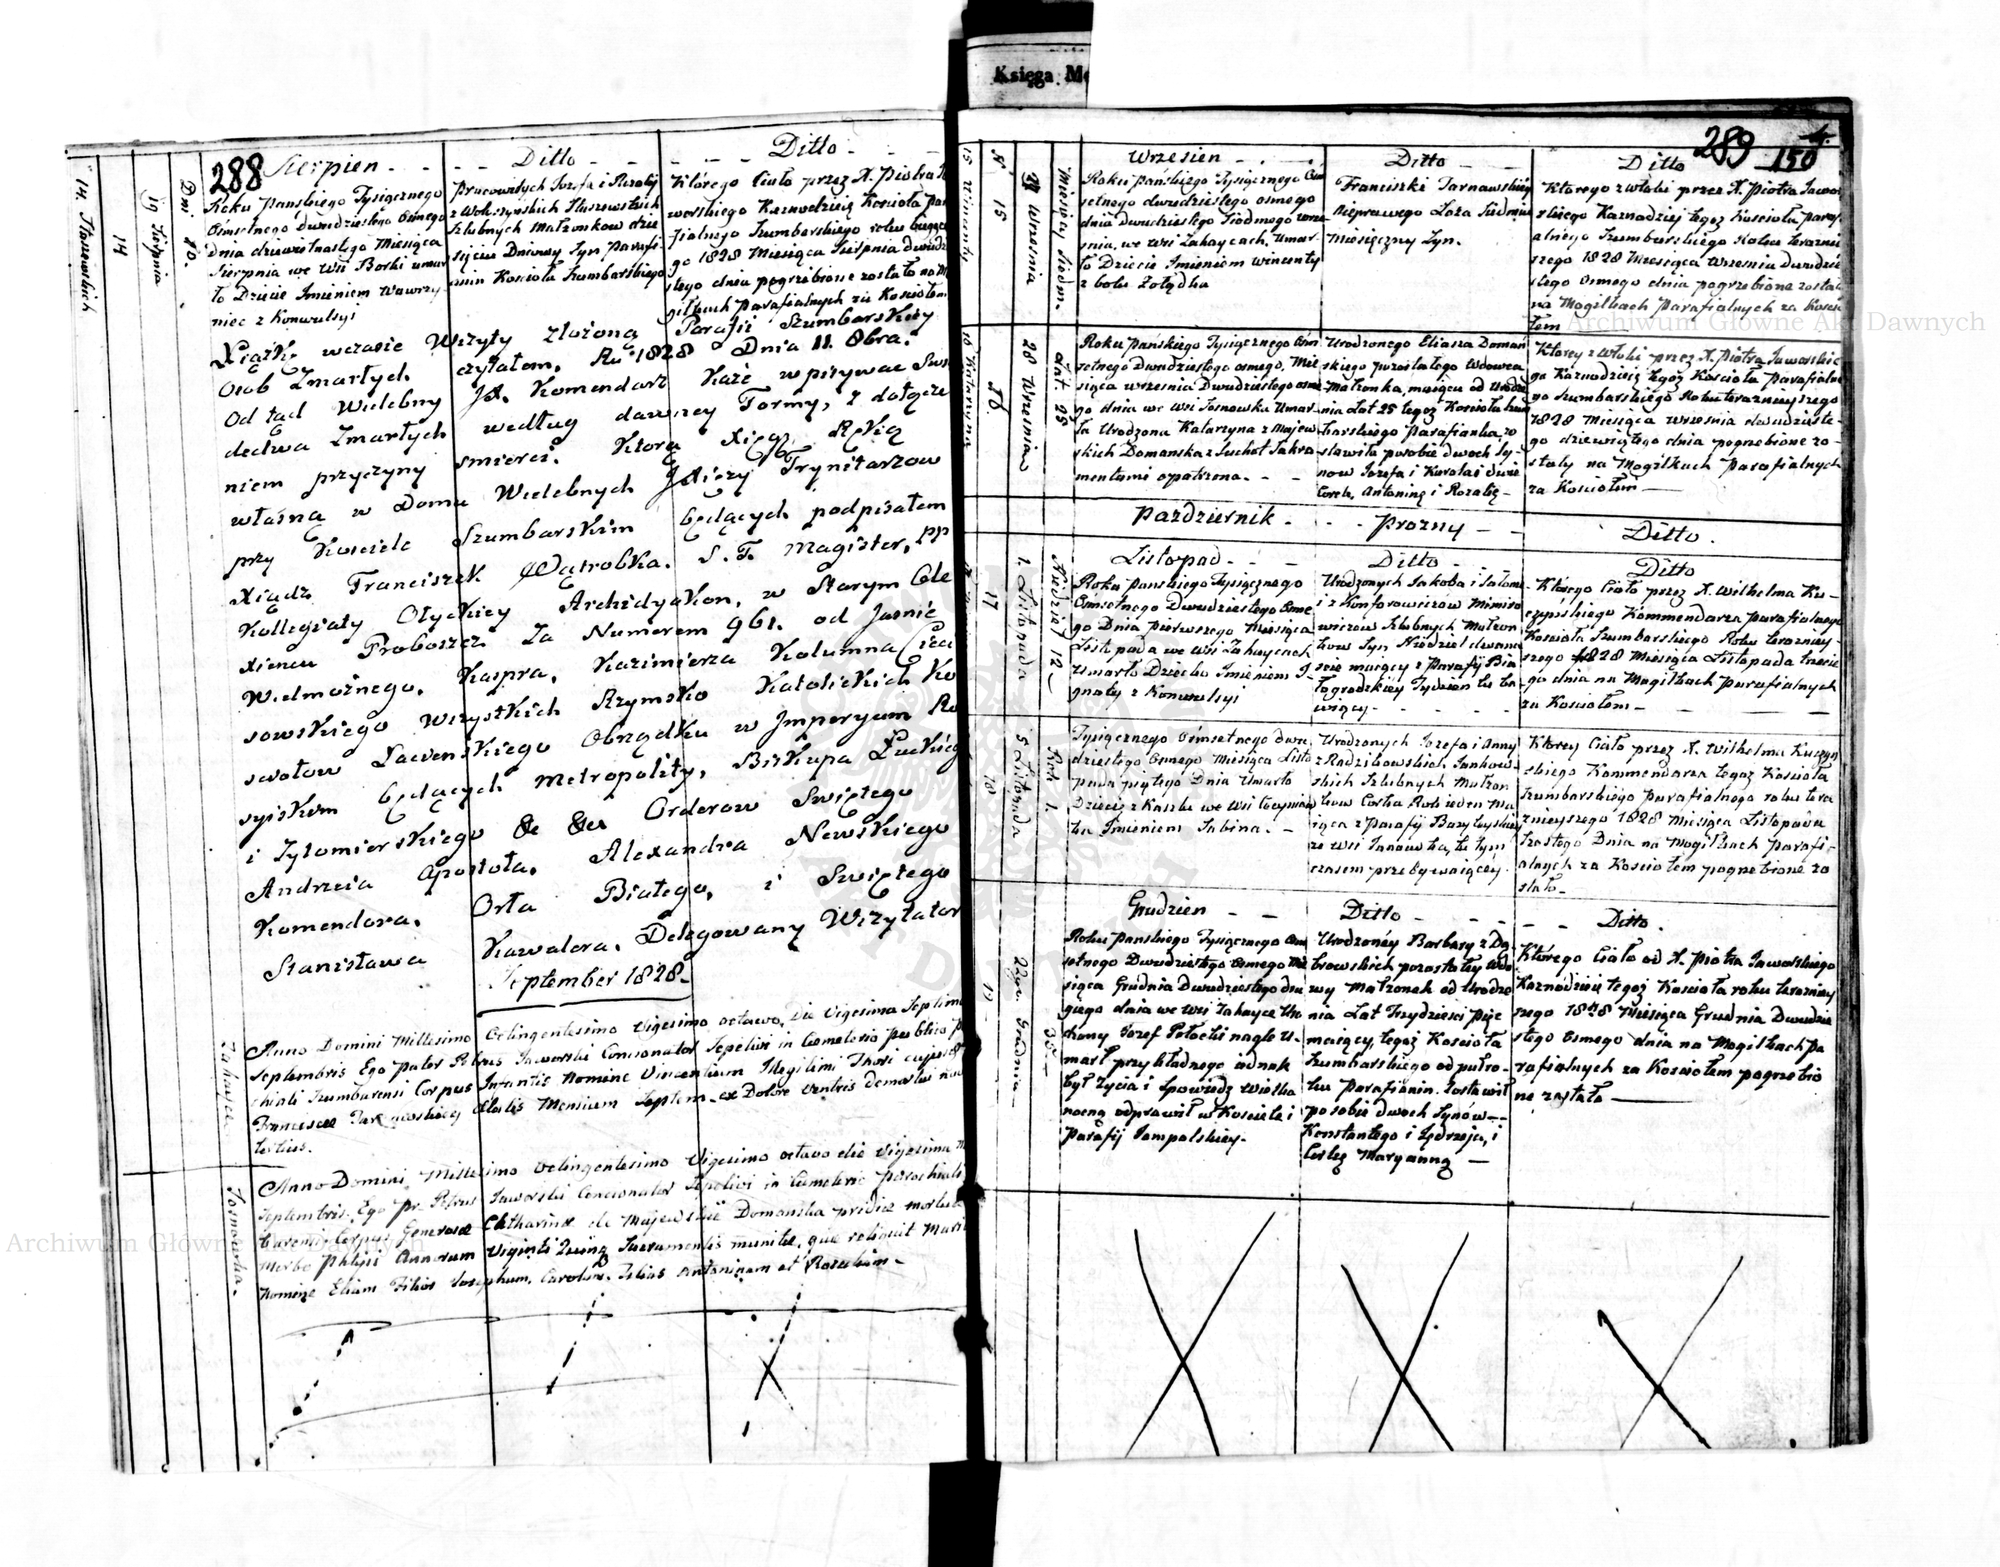 Księga Me
288
Sierpien
Ditto
Ditto
Roku Panskiego Tysiącznego
Osmsetnego dwudziestego Osmego
dnia dziewiętnastego Miesiąca
Sierpnia we Wsi Borki umar
ło Dziecie Imieniem Wawrzy
niec z Konwulsyi
pracowitych Jozefa i Rozalij
Szlubnych Małzonkow dzie
sięciu Dniowy Syn Parafi
anin Kościoła Szumbarskiego
Którego Ciało przez X. Piotra Ja
worskiego Kaznodzieię Kościoła Para
fialnego Szumbarskiego roku bieżące
go 1828 Miesiąca Sierpnia dwudzie
stego dnia pogrzebione zostało na Mo
giłkach parafialnych za Kościołem
14
19 Sierpnia
Dni 10.
Xiążkę wczasie Wizyty złożoną Parafii Szumbarskiey
Osob Zmarłych czytałem, Ru 1828 Dnia 11. 8bra.
Od tąd Wielebny JX. Komendarz każe wpisywac Swia
dectwa Zmarłych według dawney Formy, z dołącze
niem przyczyny smierci. Ktorą Xięgę Ręką
własną w Domu Wielebnych JXięży Trynitarzow
przy Kosciele Szumbarskim będących podpisałem
Xiądz Franciszek Wątrobka. S. T. Magister, pp
Kollegiaty Ołyckiey Archidyakon, w Starym
Proboszcz Za Numerem 961. od Jasnie
Wielmożnego, Kaspra, Kazimierza Kolumna Ciecі
szowskiego Wszystkich Rzymsko Katolickich Ko
sciołow Łacenskiego Obrządku w Imperyum Ro
syiskim będących Metropolity, Biskupa Łuckieg
i Zytomierskiego Orderow Swiętego
Andrzeia Apostoła, Alexandra Newskiego
Komendora, Orła Białego, i Swiętego
Stanisława Kawalera. Delegowany Wizytator
September 1828.
Zahayce
Anno Domini Millesimo Octingentesimo Vigesimo octavo, Die Vigesima Septima
Septembris Ego pater Petrus Jaworski Concionator Sepelivi in Cœmeterio
Szumbarensi Corpus Infantis Nomine Vincentium Illegitimi Thori
Francisca Tarnawskiey Ætatis Mensium Septem ex Dolore Ventris
Sosnowka.
Anno Domini Millesimo Octingentesimo Vigesimo octavo die Vigesima
Septembris. Ego pr. Petrus Jaworski Concionator Sepelivi in Cœmeterio Parochiali
Corpus Generosæ Catharinæ de Majewskie Domanska pridie
Morbo Phtysi Annorum Viginti Quinq Sacramentis munitæ, quæ reliquit
Nomine Eliam Filios Josephum, Filias Antoninam et Rosaliam
289
4
150
15 Wincenty
N. 15
27 Wrzesnia
Miesięcy Siedm.
Wrzesien
Roku Pańskiego Tysiącznego Osm
setnego dwudziestego osmego
dnia Dwudziestego Siodmego wrze
śnia, we Wsi Zahaycach, Umar
ło Dziecie Imieniem Wincenty
z bolu żołądka
Ditto
Franciszki Tarnawskiey
Nieprawego Łoża Siedmio
Miesięczny Syn.
Ditto
Ktorego zwłoki przez X. Piotra Jawor
skiego Kaznodzieję tegoż Kościoła paraf
ialnego Szumbarskiego Roku teraznie
szego 1828 Miesiąca Wrzesnia Dwudzie
stego Osmego dnia pogrzebione zostały
na Mogiłkach Parafialnych za Koscio
łem
16 Katarzyna
16.
28 Wrzesnia
Lat 25
Roku Pańskiego Tysiącznego Osm
setnego Dwudziestego osmego, Mie
siąca września Dwudziestego osme
go dnia we Wsi Sosnowka Umar
ła Urodzona Katarzyna z Majew
skich Domanska z Suchot Sakra
mentami opatrzona.
Urodzonego Eliasza Doman
skiego pozostałego Wdowca
Małonka, maiąca od Urodze
nia Lat 25 tegoż Kościoła Szum
barskiego Parafianka, zo
stawiła po sobie dwoch Sy
now Jozefa i Karola i dwie
Corek, Antoninę i Rozalię
Ktorey zwłoki przez X. Piotra Jaworskie
go Kaznodzieię tegoż Kościoła parafialne
go Szumbarskiego Roku teraznieyszego
1828 Miesiąca września dwudzieste
go dziewiątego dnia pogrzebione zo
stały na Mogiłkach Parafialnych
za Kosciołem
Pazdziernik
prozny
Ditto.
17
1. Listopada
Niedziel 12
Listopad
Roku Panskiego Tysiącznego
Osmsetnego Dwudziestego Osme
go Dnia pierwszego Miesiąca
Listopada we Wsi Zahaycach
Umarło Dziecko Imieniem I
gnacy z Konwulsyi
Ditto
Urodzonych Jakoba i Salomei
wiczow Szlubnych Małzon
kow Syn Niedziel dwana
scie maiący z Parafij Bia
łogrodzkiey
Ditto
Ktorego Ciało przez X. Wilhelma Ku
czynskiego Kommendarza parafialnego
Koscioła Szumbarskiego Roku teraznieу
szego 1828 Miesiąca Listopada trzecie
go dnia na Mogiłkach parafialnych
za Kosciołem
18
5 Listopada
Rok 1.
Tysiącznego Osmsetnego dwu
dziestego Osmego Miesiąca Listo
pada piątego Dnia Umarło
Dziecię z Kaszlu we Wsi
Imieniem Sabina.
Urodzonych Jozefa i Anny
z Radzibowskich Jankow
skich Szlubnych Małzon
kow Corka Rok ieden ma
iąca z Parafij Bazyliyskiey
ze Wsi Janowka, tu tym
czasem przebywaiącey
Ktorey Ciało przez X. Wilhelma Kuczyn
skiego Kommendarza tegoż Kościoła
Szumbarskiego parafialnego roku tera
znieyszego 1828 Miesiąca Listopada
szostego Dnia na Mogiłkach parafi
alnych za Kosciołem pogrzebione zo
stało
19
Grudnia
35
Grudzien
Roku Panskiego Tysiącznego Osm
setnego Dwudziestego Osmego Mie
siąca Grudnia Dwudziestego dru
giego dnia we Wsi Zahayce Uro
dzony Jozef Potocki nagle u
marł przykładnego jednak
był życia i Spowiedz Wielka
nocną odprawił w Kosciele i
parafij Jampolskiey.
Ditto
Urodzoney Barbary z Dą
browskich pozostałey Wdo
wy Małzonek od Urodze
nia Lat Trydziesci pięc
maiący tegoż Kosciola
Szumbarskiego od pułro
ku Parafianin. Zostawił
po sobie dwoch Synów
Konstantego i Jędrzeja, i
Corkę Maryannę
Ditto.
Którego Ciało od X. Piotra Jaworskiego
Kaznodzieię tegoż Kosciola roku terazniey
szego 1828 Miesiąca Grudnia Dwudzie
stego Osmego dnia na Mogiłkach pa
rafialnych za Kosciołem pogrzebio
ne zostało
Archiwum Główne Akt Dawnych
Archiwum Główne Akt Dawnych